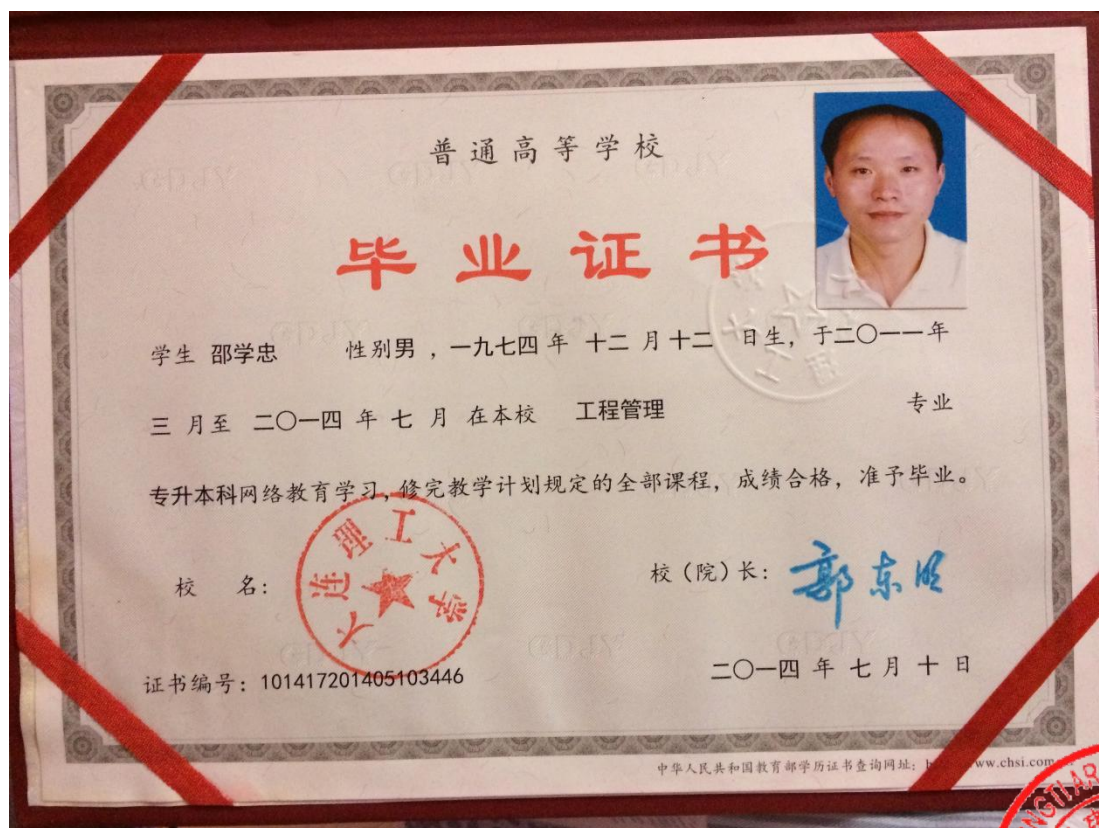 普通高等学校
毕业证书
学生 邵学忠 性别男，一九七四年 十二 月十二 日生，于二〇一一年
三 月至 二〇一四 年 七 月 在本校 工程管理 专业
专升本科网络教育学习，修完教学计划规定的全部课程，成绩合格，准予毕业。
校 名：
大连理工大学
校（院）长：
郭东明
证书编号：101417201405103446
二〇一四 年 七 月 十 日
中华人民共和国教育部学历证书查询网址：
www.chsi.com